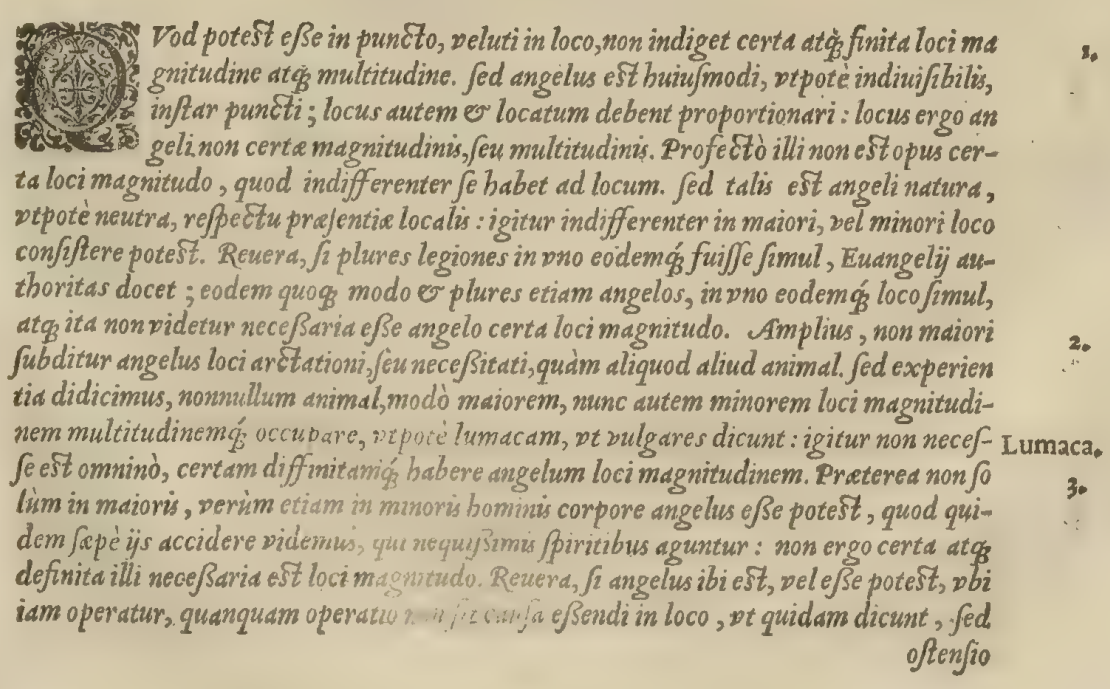 QVod potest eſſe in puncto, veluti in loco, non indiget certa atq; finita loci ma
gnitudine atq; multitudine. ſed angelus est huiuſmodi, vtpotè indiuiſibilis,
inſtar puncti ; locus autem & locatum debent proportionari : locus ergo an
geli non certæ magnitudinis, ſeu multitudinis. Profectò illi non est opus cer-
ta loci magnitudo , quod indifferenter ſe habet ad locum. ſed talis est angeli natura ,
vtpotè neutra, reſpectu præſentiæ localis : igitur indifferenter in maiori, vel minori loco
conſiſtere potest. Reuera, ſi plures legiones in vno eodemq́; fuiſſe ſimul , Euangelij au-
thoritas docet ; eodem quoq; modo & plures etiam angelos, in vno eodemq́; loco ſimul,
atq; ita non videtur neceſſaria eſſe angelo certa loci magnitudo. Amplius , non maiori
ſubditur angelus loci arctationi, ſeu neceſſitati, quàm aliquod aliud animal. ſed experien
tia didicimus, nonnullum animal, modò maiorem, nunc autem minorem loci magnitudi-
nem multitudinemq́; occupare, vtpotè lumacam, vt vulgares dicunt : igitur non neceſ-
ſe est omninò, certam diffinitamq́; habere angelum loci magnitudinem. Præterea non ſo
lùm in maioris , verùm etiam in minoris hominis corpore angelus eſſe potest , quod qui-
dem ſæpè ijs accidere videmus, qui nequiſſimis ſpiritibus aguntur : non ergo certa atq;
definita illi neceſſaria est loci magnitudo. Reuera, ſi angelus ibi est, vel eſſe potest, vbi
iam operatur, quanquam operatio non ſit cauſa eſſendi in loco , vt quidam dicunt , ſed
oſtenſio
1.
2.
Lumaca.
3.